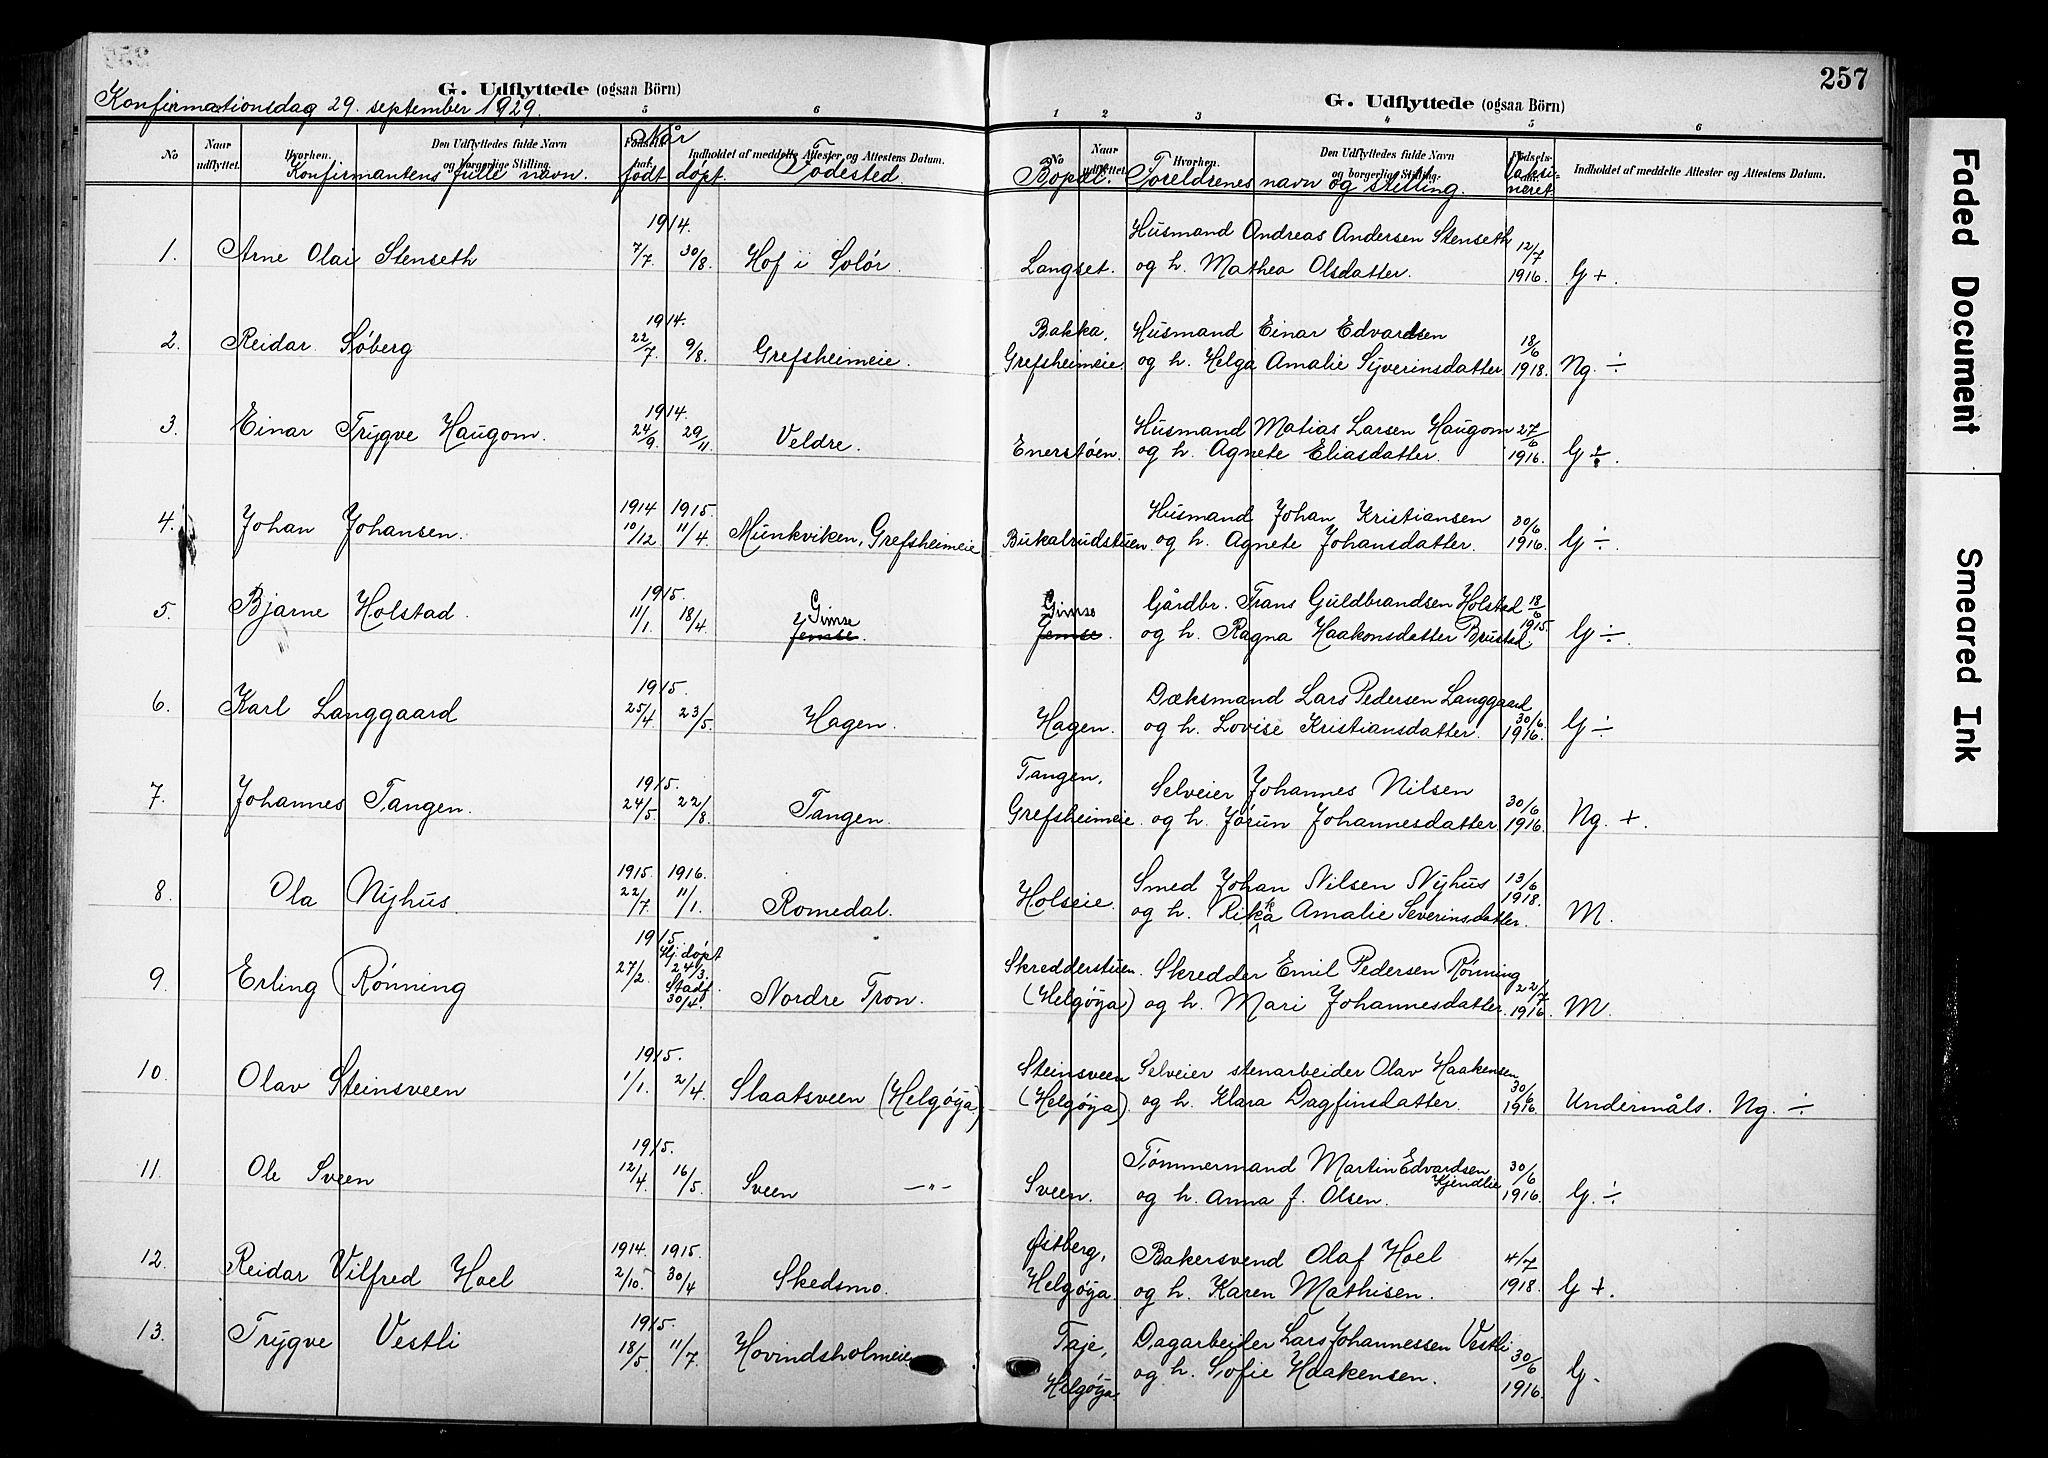 G. Udflyttede (ogsaa Börn)
Konfirmationsdag 29. september 1929.
5 6
No
Naar udflyttet.
Hvorhen.
Den Udflyttedes fulde Navn og borgerlige Stilling.
Indholdet af meddelte Attester og Attestens Datum.
Konfirmantens fulle navn.
Når
født døpt.
Fødested.
1. Arne Olai Stenseth 1914. 7/7. 30/8. Hof i Solør.
2. Reidar Søberg 1914. 22/7. 9/8. Grefsheimeie.
3. Einar Trygve Haugom. 1914. 24/9. 29/11. Veldre.
4. Johan Johansen. 1914 10/12. 1915. 11/4. Munkviken, Grefsheimeie
5. Bjarne Holstad. 1915. 11/1. 18/4. Gimse Jemse.
6. Karl Langgaard 1915. 25/4. 23/5. Hagen.
7. Johannes Tangen. 1915. 24/5. 22/8. Tangen.
8. Ola Nyhus. 1915. 22/7. 1916. 11/1. Romedal.
9. Erling Rønning 1915. 27/2. Hj. døpt 24/3. Stadf. 30/4. Nordre Tron.
10. Olav Steinsveen 1915. 1/1. 2/4. Slaatsveen (Helgøya)
11. Ole Sveen 1915. 12/4. 16/5. Sveen —"—
12. Reidar Vilfred Hoel 1914. 2/10. 1915. 30/4. Skedsmo.
13. Trygve Vestli 1915. 18/5. 11/7. Hovindsholmeie
257
G. Udflyttede (ogsaa Börn)
1 2 3 4 5 6
No
Naar udflyttet.
Hvorhen.
Den Udflyttedes fulde Navn og borgerlige Stilling.
Indholdet af meddelte Attester og Attestens Datum.
Bopæl. Foreldrenes navn og stilling. Vaksineret
Husmand Andreas Andersen Stenseth 12/7
Langset. og h. Mathea Olsdatter. 1916. G +.
Bakka, Husmand Einar Edvardsen 18/6
Grefsheimeie. og h. Helga Amalie Syverinsdatter 1918. Ng. ÷
Husmand Matias Larsen Haugom 27/6
Enerstøen. og h. Agnete Eliasdatter. 1916. G ÷.
Husmand Johan Kristiansen 30/6
Bukalrudstuen. og h. Agnete Johansdatter. 1916. G ÷.
Gimse Gårdbr. Frans Guldbrandsen Holstad 18/6
Jemse. og h. Ragna Haakonsdatter Brustad. 1915. G ÷.
Dæksmand Lars Pedersen Langgaard
Hagen. og h. Lovise Kristiansdatter. 30/6. 1916. G ÷
Tangen, Selveier Johannes Nilsen 30/6
Grefsheimeie. og h. Jørun Johannesdatter 1916. Ng. +.
Smed Johan Nilsen Nyhus 13/6
Holseie. og h. Rikka Amalie Severinsdatter. 1918. M.
Skredderstuen. Skredder Emil Pedersen Rønning
(Helgøya) og h. Mari Johannesdatter. 22/7 1916. M.
Steinsveen Selveier stenarbeider Olav Haakensen
(Helgøya). og h. Klara Dagfinsdatter. 30/6 1916. Undermåls. Ng. ÷
Tømmermand Martin Edvardsen Kjendlie 30/6
Sveen. og h. Anna f. Olsen. 1916. G. ÷
Østberg, Bakersvend Olaf Hoel 4/7
Helgøya. og h. Karen Mathisen. 1918. G +.
Taje, Dagarbeider Lars Johannessen Vestli
Helgøya. og h. Sofie Haakensen. 30/6 1916. G.
Faded Document
Smeared Ink